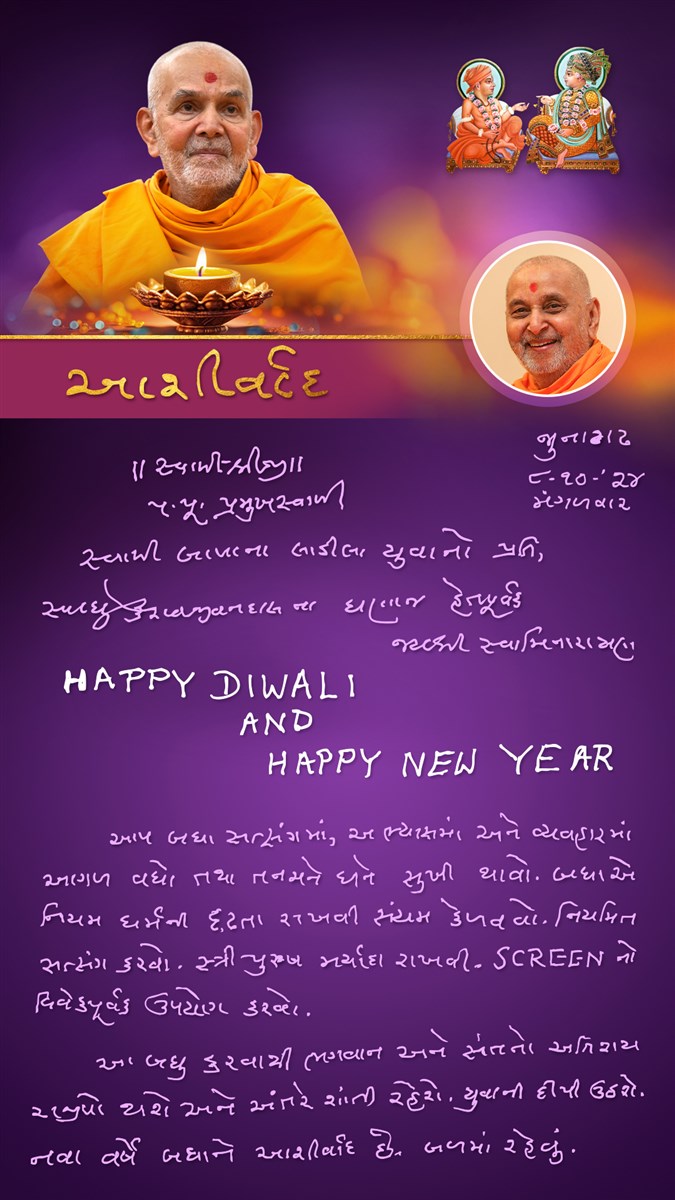 આશીર્વાદ
જુનાગઢ
॥ સ્વામી-શ્રીજી॥
૮-૧૦-'૨૪
પ.પૂ. પ્રમુખસ્વામી
મંગળવાર
સ્વામી બાપાના લાડીલા યુવાનો પ્રતિ,
સાધુ કેશવજીવનદાસ ના ઘણાજ હેતપૂર્વક
જયશ્રી સ્વામિનારાયણ
HAPPY DIWALI
AND
HAPPY NEW YEAR
આપ બધા સત્સંગમાં, અભ્યાસમાં અને વ્યવહારમાં
આગળ વધો તથા તનમને ધને સુખી થાવો. બધાએ
નિયમ ધર્મની દૃઢતા રાખવી સંયમ કેળવવો. નિયમિત
સત્સંગ કરવો. સ્ત્રી-પુરુષ મર્યાદા રાખવી. SCREEN નો
વિવેકપૂર્વક ઉપયોગ કરવો.
આ બધુ કરવાથી ભગવાન અને સંતનો અતિશય
રાજીપો થાશે અને અંતરે શાંતી રહેશે. યુવાની દીપી ઉઠશે.
નવા વર્ષે બધાને આશીર્વાદ છે. બળમાં રહેવું.